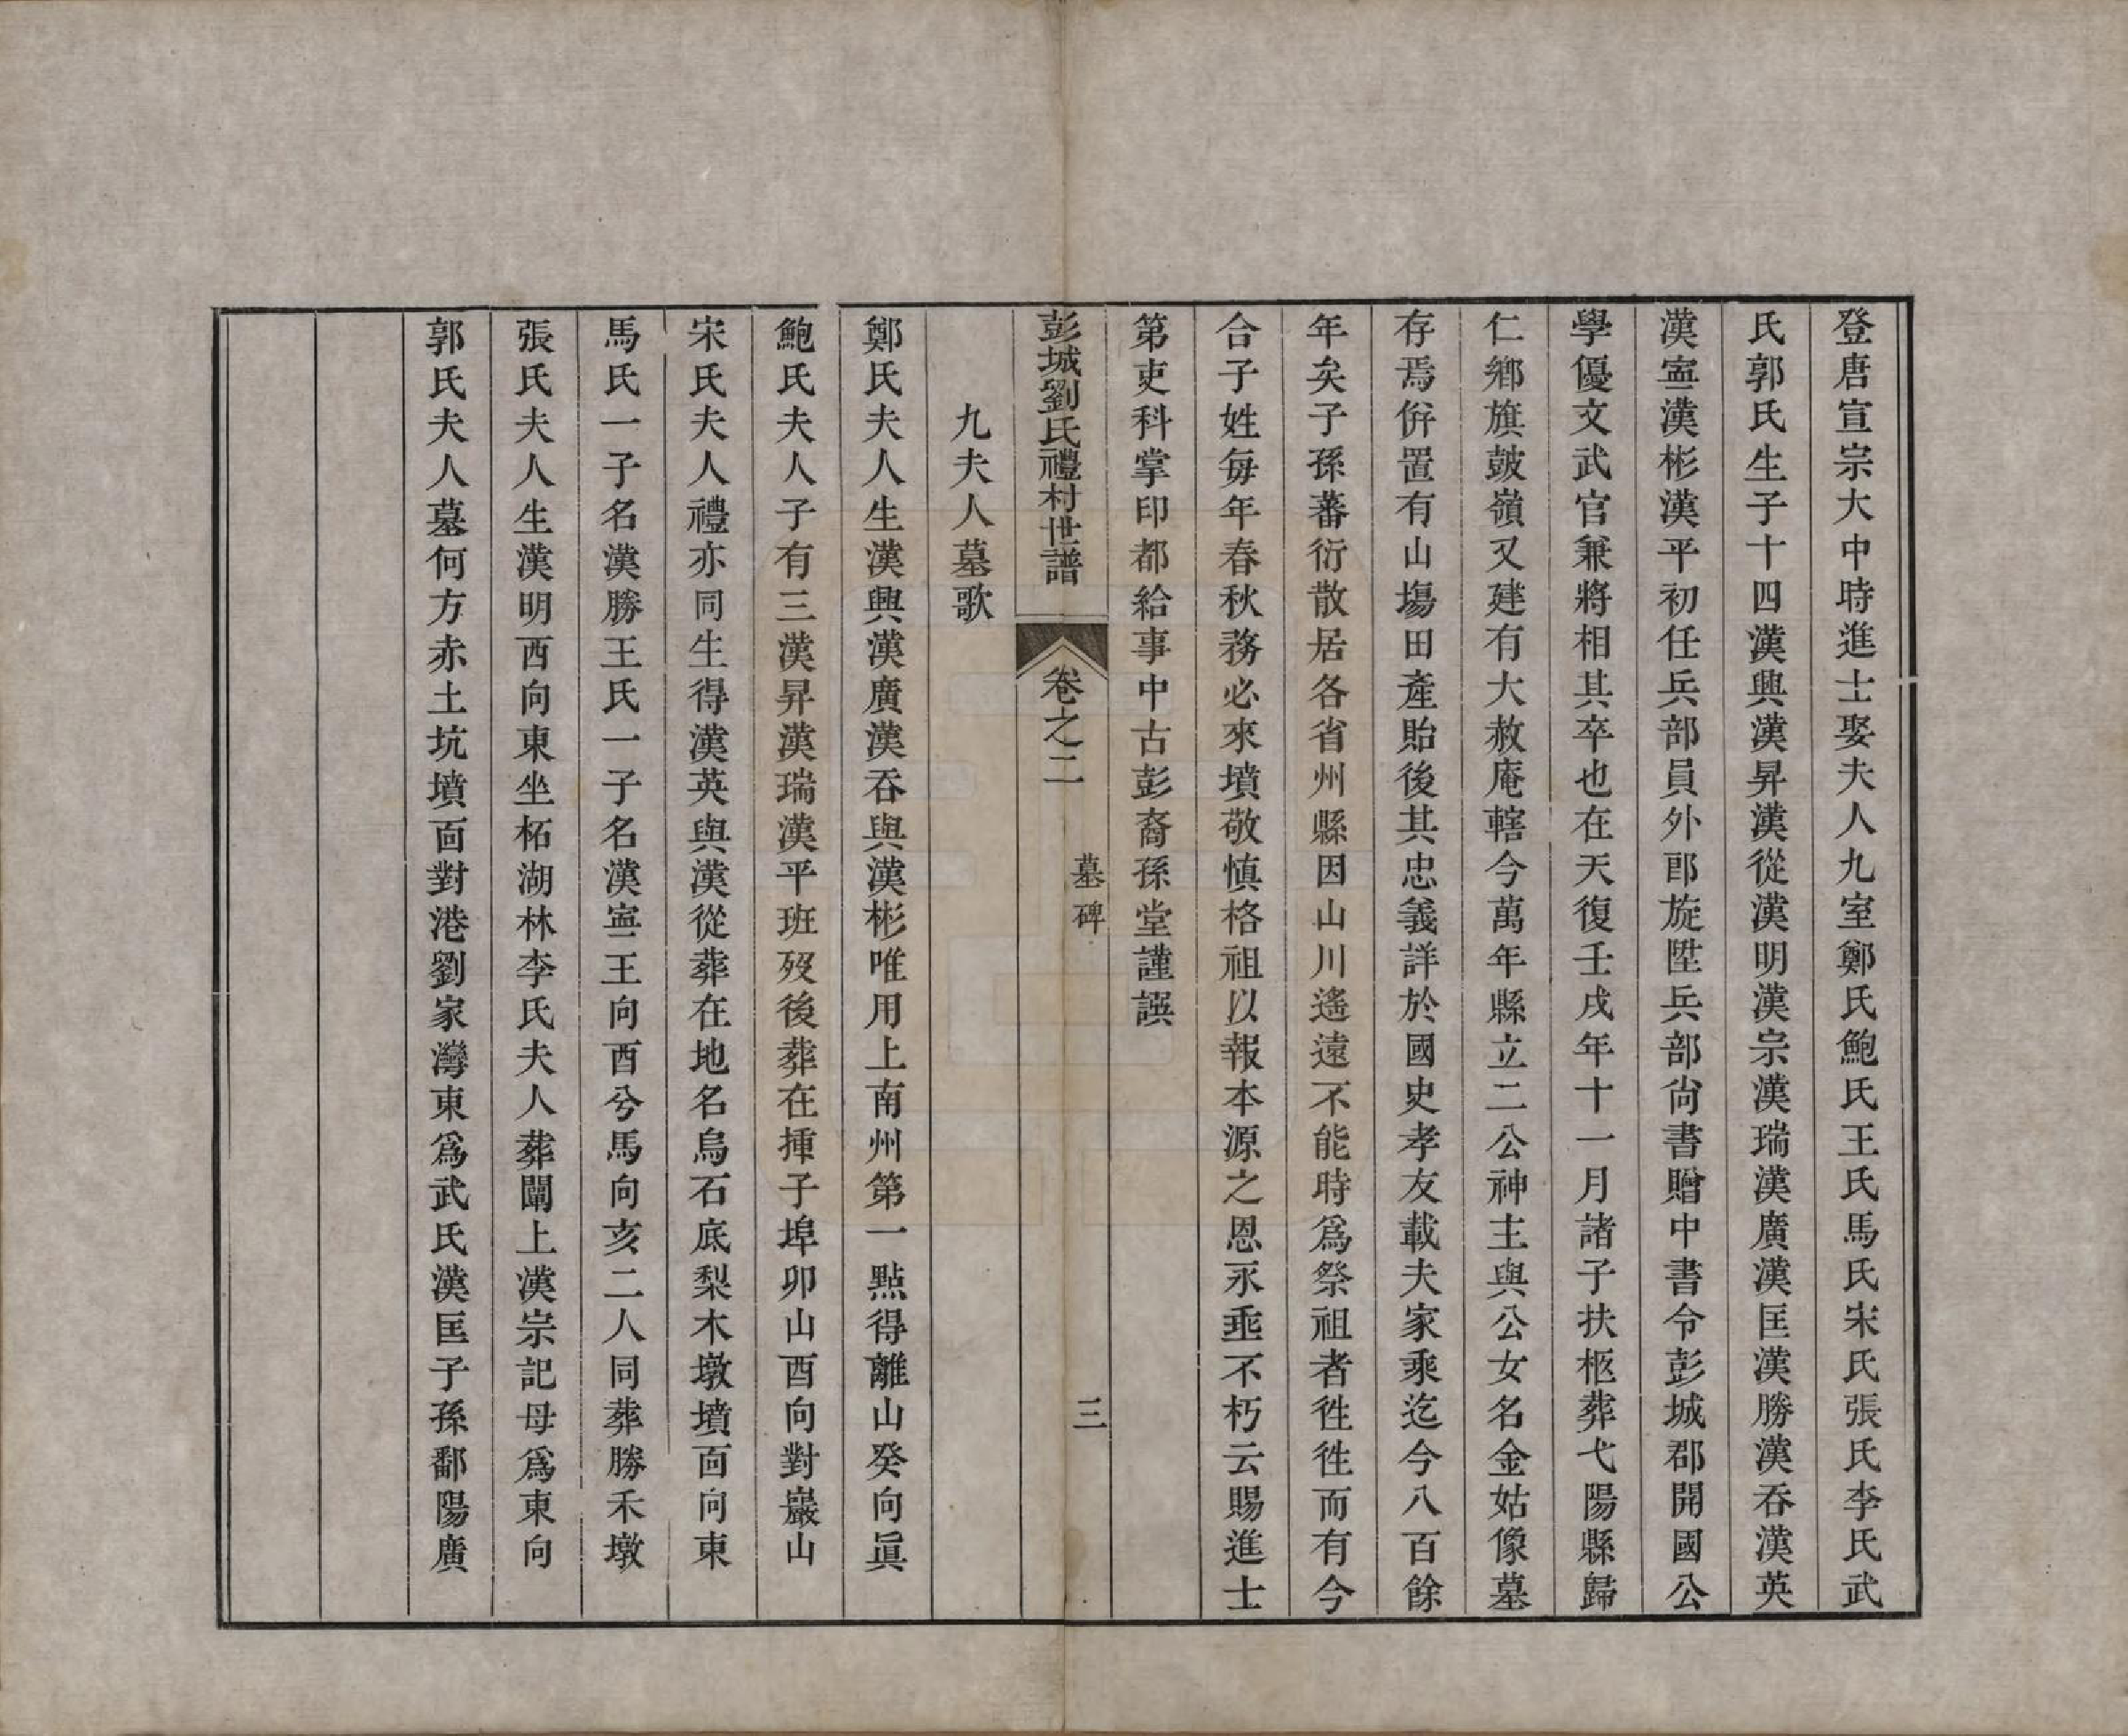 登唐宣宗大中時進士娶夫人九室鄭氏鮑氏王氏馬氏宋氏張氏李氏武
氏郭氏生子十四漢興漢昇漢從漢明漢宗漢瑞漢廣漢匡漢勝漢吞漢英
漢寍漢彬漢平初任兵部員外郎旋陞兵部尙書贈中書令彭城郡開國公
學優文武官兼將相其卒也在天復壬戌年十一月諸子扶柩葬弋陽縣歸
仁鄉旗皷嶺又建有大赦庵轄今萬年縣立二公神主與公女名金姑像墓
存焉併置有山塲田產貽後其忠義詳於國史孝友載夫家乘迄今八百餘
年矣子孫蕃衍散居各省州縣因山川遙遠不能時爲祭祖者徃徃而有今
合子姓每年春秋務必來墳敬愼格祖以報本源之恩永垂不朽云賜進士
第吏科掌印都給事中古彭裔孫堂謹譔
彭城劉氏禮村世譜 卷之二 墓碑 三
九夫人墓歌
鄭氏夫人生漢興漢廣漢吞與漢彬唯用上南州第一點得離山癸向眞
鮑氏夫人子有三漢昇漢瑞漢平班歿後葬在揰子埠卯山酉向對巖山
宋氏夫人禮亦同生得漢英與漢從葬在地名烏石底梨木墩墳面向東
馬氏一子名漢勝王氏一子名漢寍王向酉兮馬向亥二人同葬勝禾墩
張氏夫人生漢明西向東坐柘湖林李氏夫人葬闈上漢宗記母爲東向
郭氏夫人墓何方赤土坑墳面對港劉家灣東爲武氏漢匡子孫鄱陽廣